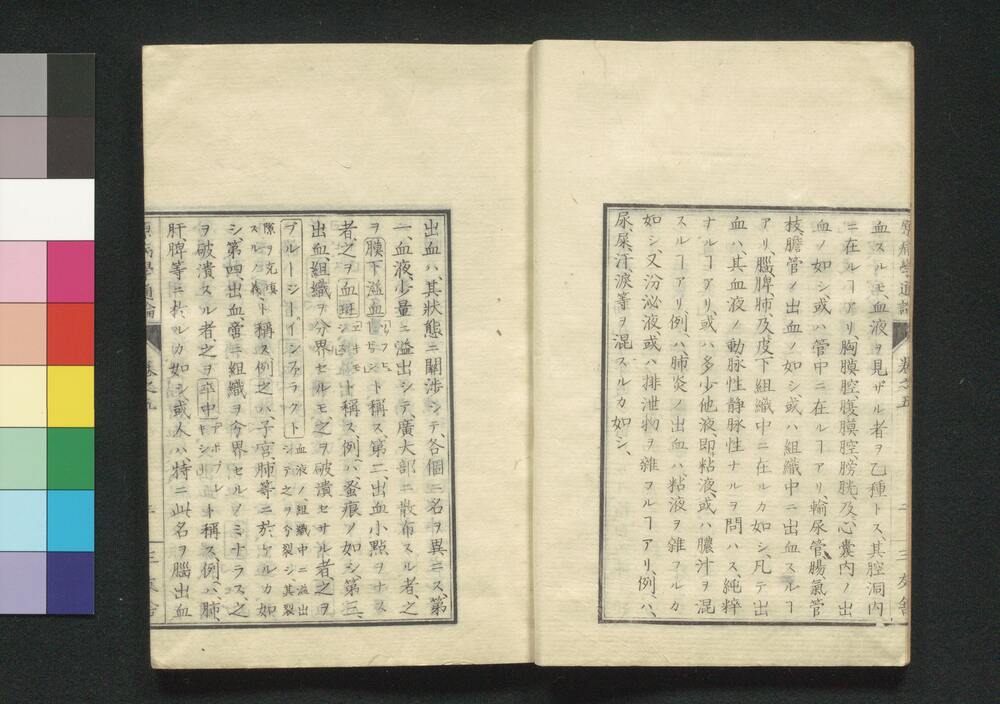 血スルモ、血液ヲ見ザル者ヲ乙種トス、其腔洞内
ニ在ルヿアリ、胸膜腔、腹膜腔、膀胱、及心囊内ノ出
血ノ如シ、或ハ管中ニ在ルヿアリ、輸尿管、腸、氣管
枝、膽管ノ出血ノ如シ、或ハ組織中ニ出血スルヿ
アリ、腦、脾、肺、及、皮下組織中ニ在ルカ如シ、凡テ出
血ハ、其血液ノ動脉性静脉性ナルヲ問ハス純粹
ナルヿアリ、或ハ多少他液、即粘液、或ハ膿汁ヲ混
スルヿアリ、例ハ肺炎ノ出血ハ、粘液ヲ雜フルカ
如シ、又汾泌液或ハ排泄物ヲ雜フルヿアリ、例ハ、
尿、屎、汗、淚、等ヲ混スルカ如シ、
原病學通論
卷之五
出血ハ、其狀態ニ關渉シテ各個ニ名ヲ異ニス第
一、血液、少量ニ溢出シテ、廣大部ニ散布スル者、之
ヲ腠下溢血ト稱ス、第二、出血小點ヲナス
者之ヲ血斑ト稱ス、例ハ、蚤痕ノ如シ、第三、
出血、組織ヲ分界セルモ之ヲ破潰セサル者、之ヲ
ブルージーインファラクト血液ノ、組織中ニ溢出シテ之ヲ分裂シ其裂
隙ヲ充填スルノ義ト稱ス、例之ハ、子宮、肺等ニ於ケルカ如
シ、第四、出血、啻ニ組織ヲ分界セルノミナラス、之
ヲ破潰スル者、之ヲ卒中アポプレキシート稱ス、例ハ、肺、
肝、脾、等ニ於ルカ如シ、或人ハ、特ニ此名ヲ腦出血
原病學通論
卷之五